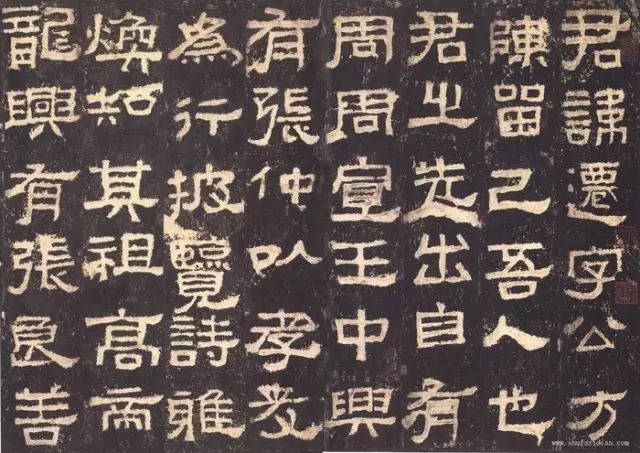 君諱遷字公方
陳留己吾人也
君之先出自有
周周宣王中興
有張仲以孝友
為行披覽詩雅
煥知其祖高帝
龍興有張良善
www.shufazidian.com